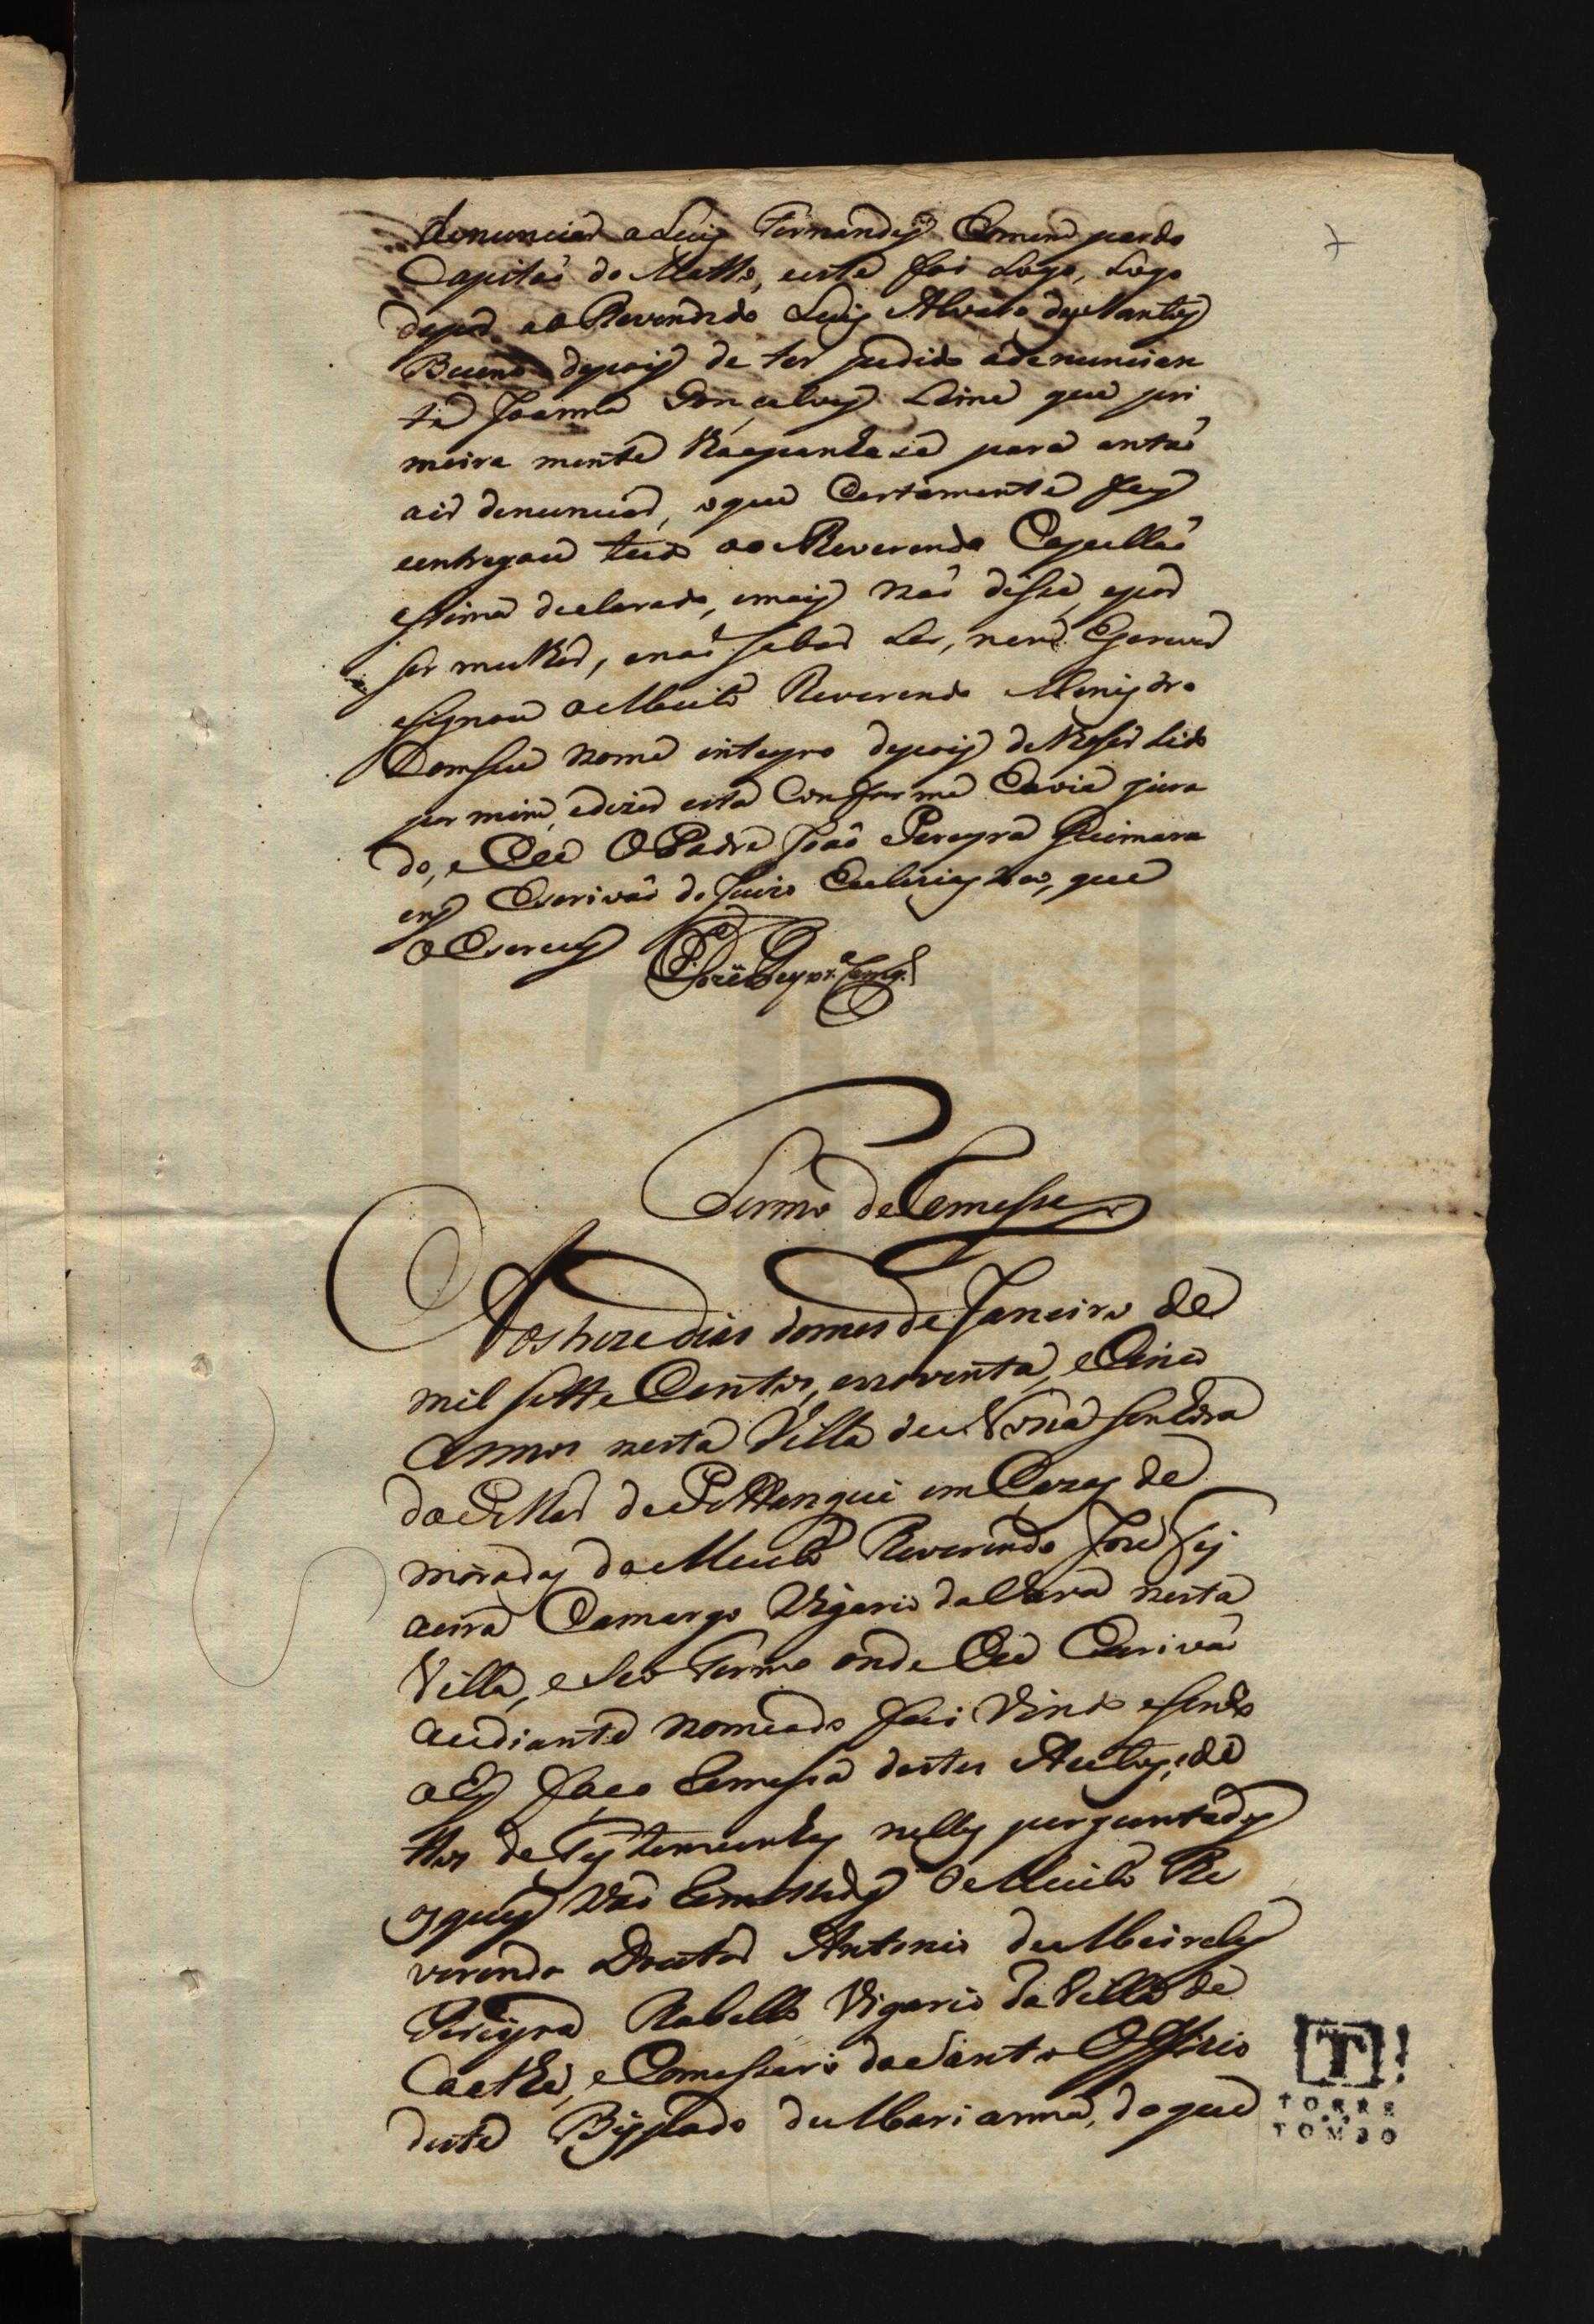 denunciar a Luis Fernandes homem pardo
Capitaõ do Matto, e este foi logo, logo
ao Reverendo Luis Alvares desNantes
Bueno depois de ter pedido a denuncian
te Joanna Gonçalves Lima que pri
meira mente para entaõ
a ir denunciar, o que Certamente fes
e entregou tudo ao Reverendo Capellaõ
asima declarado, e mais naõ disse, e por
ser mulher, e naõ saber Ler, nem Escrever
asignou o Muito Reverendo Menistro
Com seu nome inteyro depois de lhe ser lido
por mim, e dizer estar Conforme havia jura
do, e Eu O Padre Joaõ Pereyra Guimara
ens Escrivaõ do Juizo Eccleziastico, que
o Escrevy
Termo de Remessa
Aos treze dias do mes de Janeiro de
mil sette Centos, e noventa, e Cinco
annos nesta Villa de Nossa Senhora
do Pillar de Pitangui em Cazas de
moradas do Muito Reverendo José Sej
aeira Camargo Vigario da Vara nesta
Villa, e Seo Termo onde Eu Escrivaõ
audiante nomeado fui Vindo e sendo
ahy faço Remessa destes Autos, e di
ttos de Testemunhas nelles perguntadas
os quaes vaõ Remettidos Muito Re
verendo Doutor Antonio de Meireles
Pereyra Rabello Vigario da Villa de
Caethé, e Comessario do Santo Officio
deste Bispado de Marianna, do que
TORRE
TOMBO